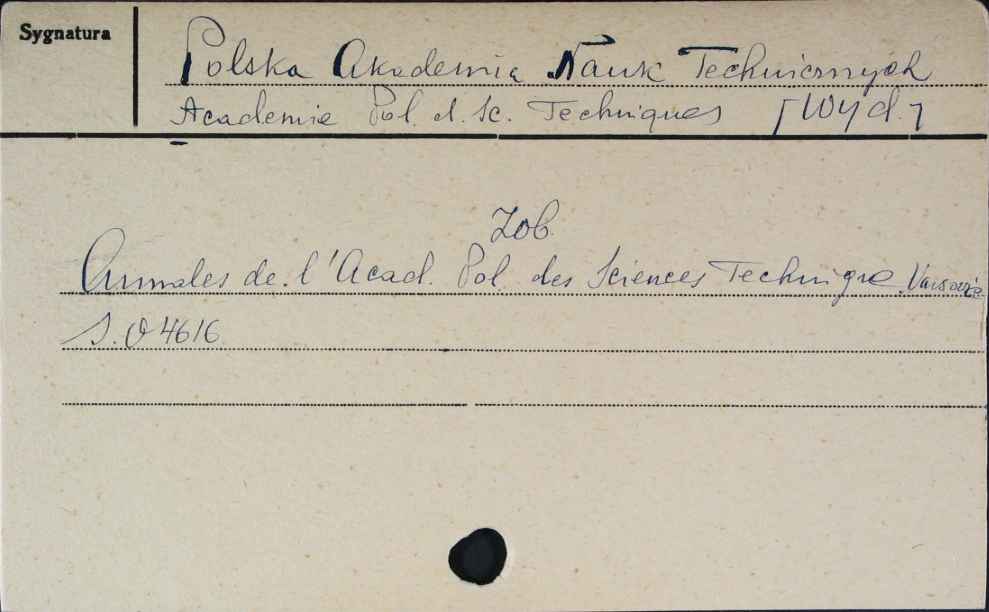 Sygnatura
Polska Akademia Nauk Technicznych
Academie Pol. d. Sc. Techniques [Wyd.]
Zob.
Annales de l'Acad. Pol. des Sciences Technique. Varsovie
S. O 4616